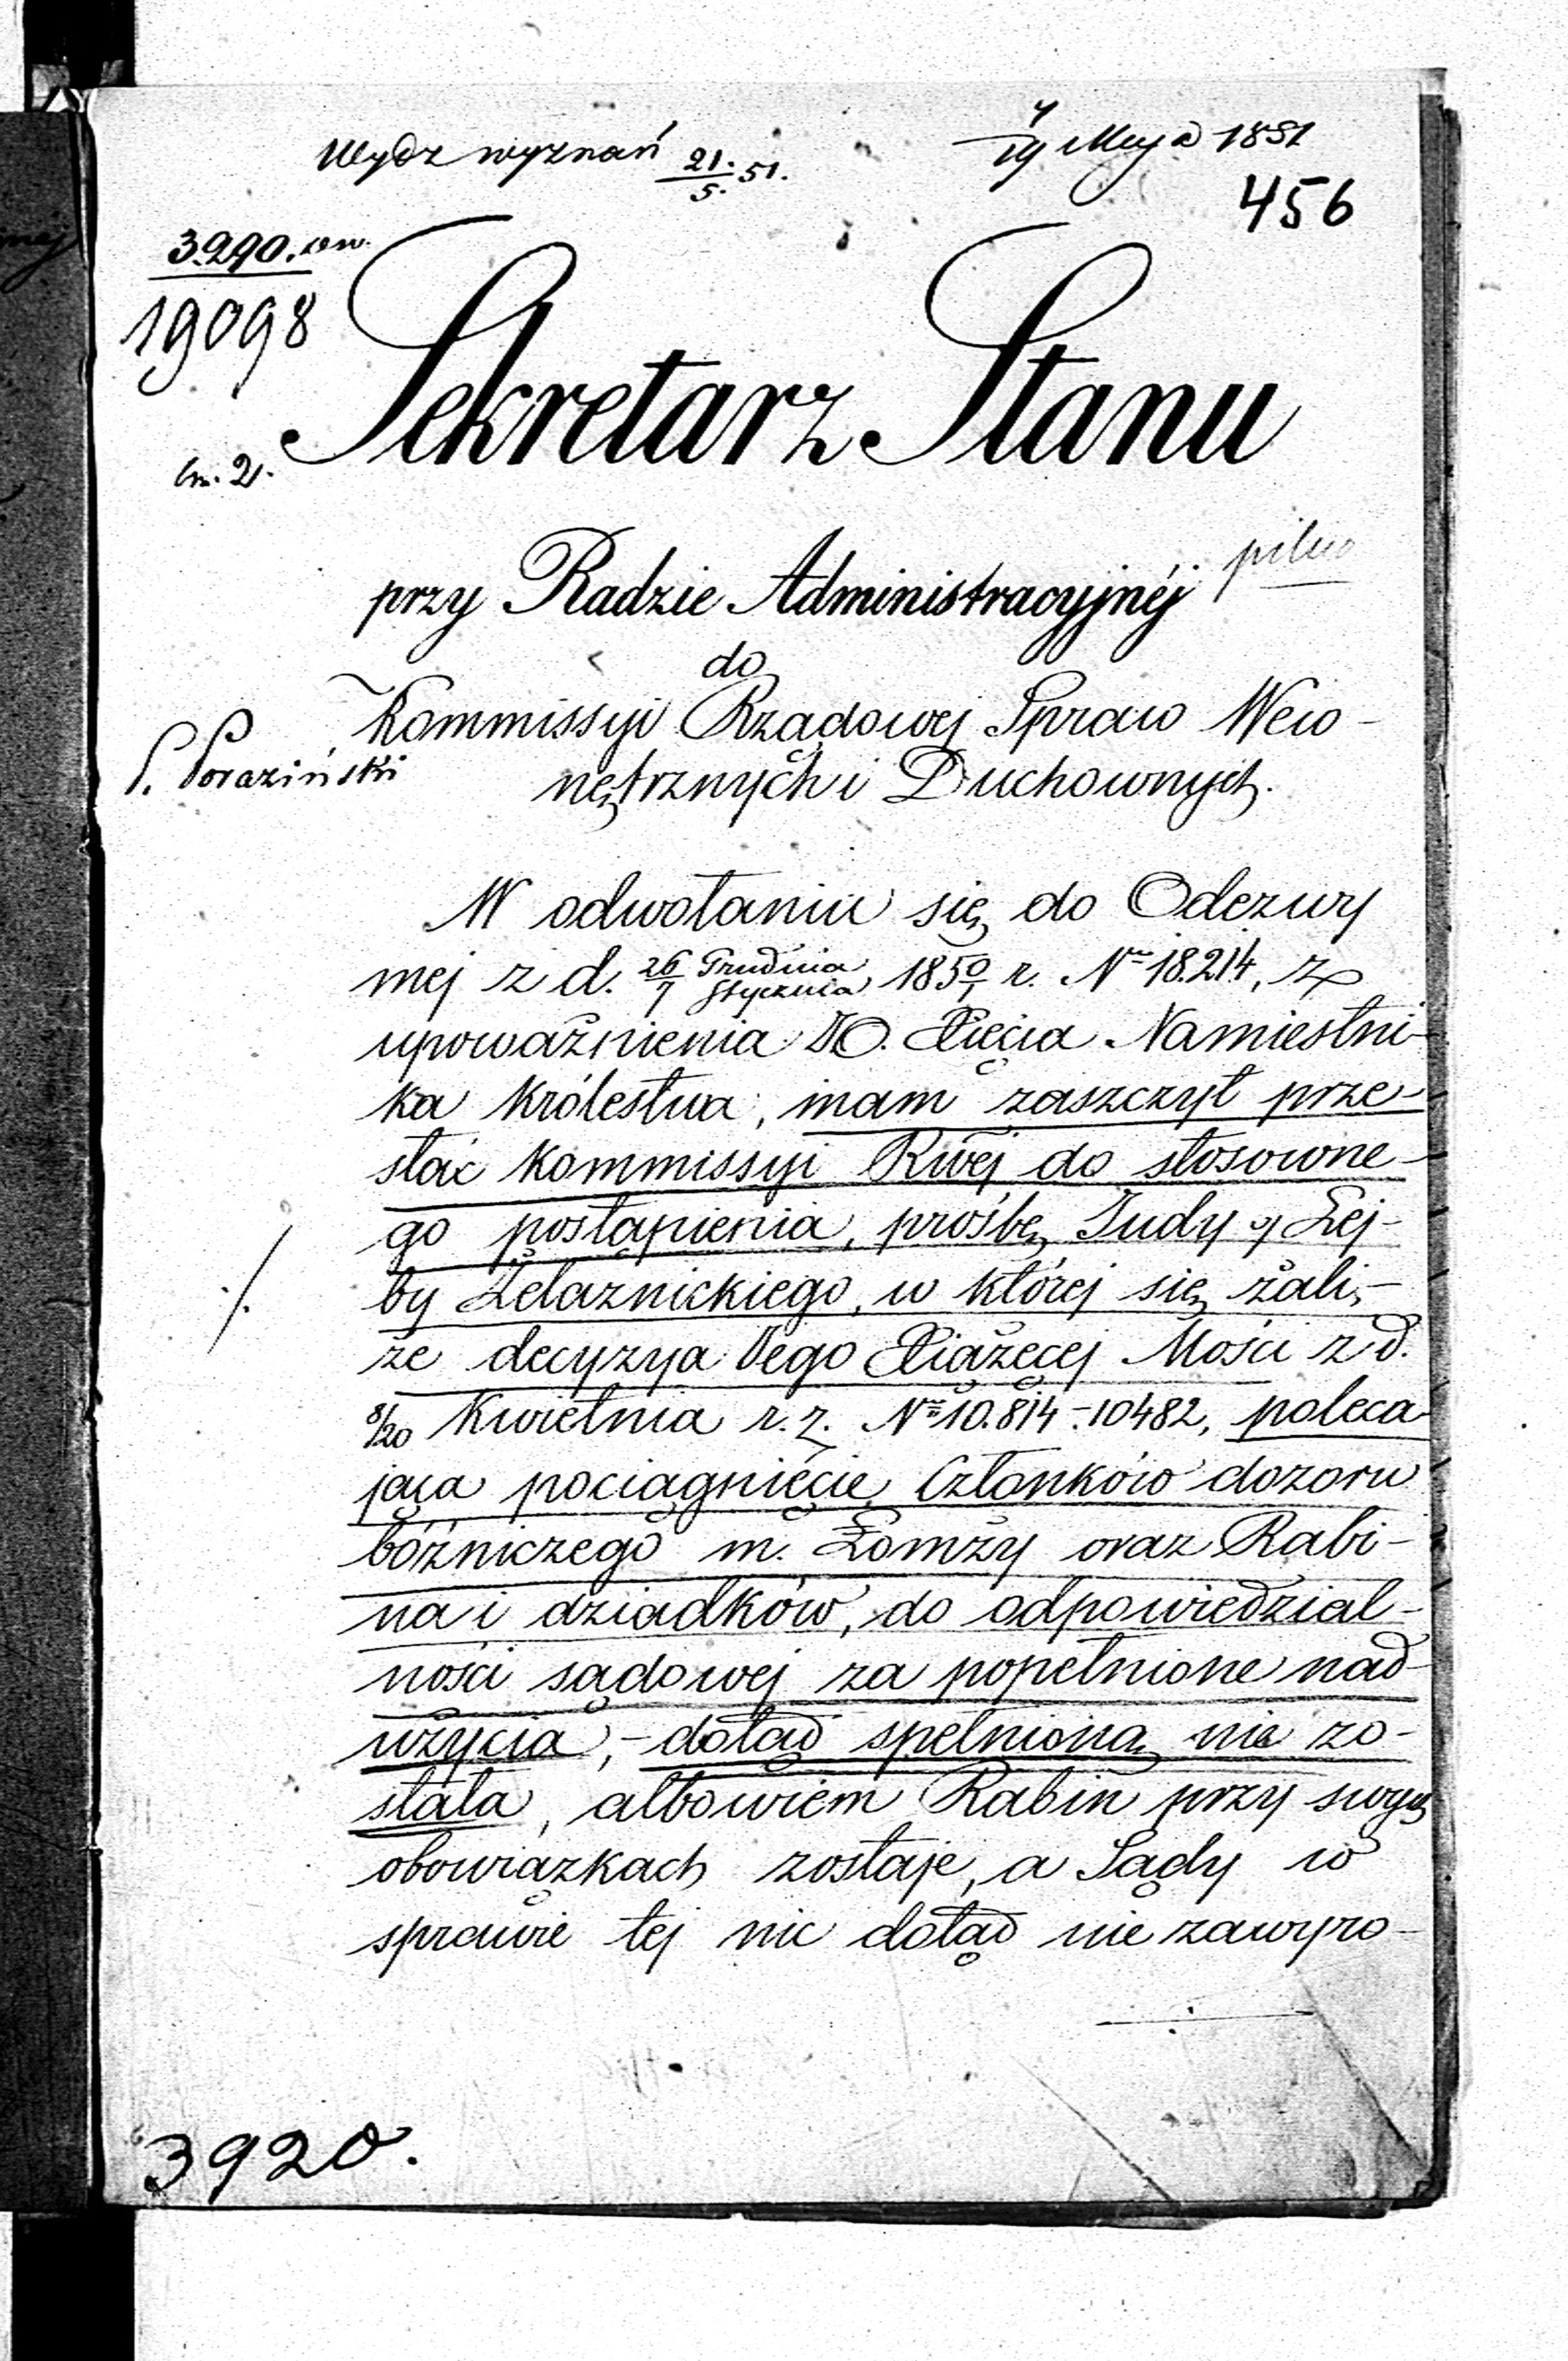 Wydz wyznań 21/5. 51.
7/19 Maja 1851
456
3290.
19098
Sekretarz Stanu
przy Radzie Administracyjnéj
pilno
do
Kommissyi Rządowej Spraw Wew-
nętrznych i Duchownych.
P. Poraziński
W odwołaniu się do Odezwy
mej z d. 26/7 Grudnia/Stycznia 1850/1 r. Nr 18.214, z
upoważnienia JO. Xięcia Namiestni-
ka Królestwa, mam zaszczyt prze-
słać Kommissyi Rwéj do stosowne-
go postąpienia, prośbę Judy Lej-
by Żelaznickiego, w której się żali,-
że decyzya Jego Xiążęcej Mości z d.
8/20 Kwietnia r. z. Nr 10.814-10482, poleca-
jąca pociągnięcie Członków dozoru
bóżniczego m. Łomży oraz Rabi-
na i dziadków, do odpowiedzial-
ności sądowej za popełnione nad-
użycia,- dotąd spełnioną nie zo-
stała, albowiem Rabin przy swych
obowiązkach zostaje, a Sądy w
sprawie tej nic dotąd nie zawyro-
3920.